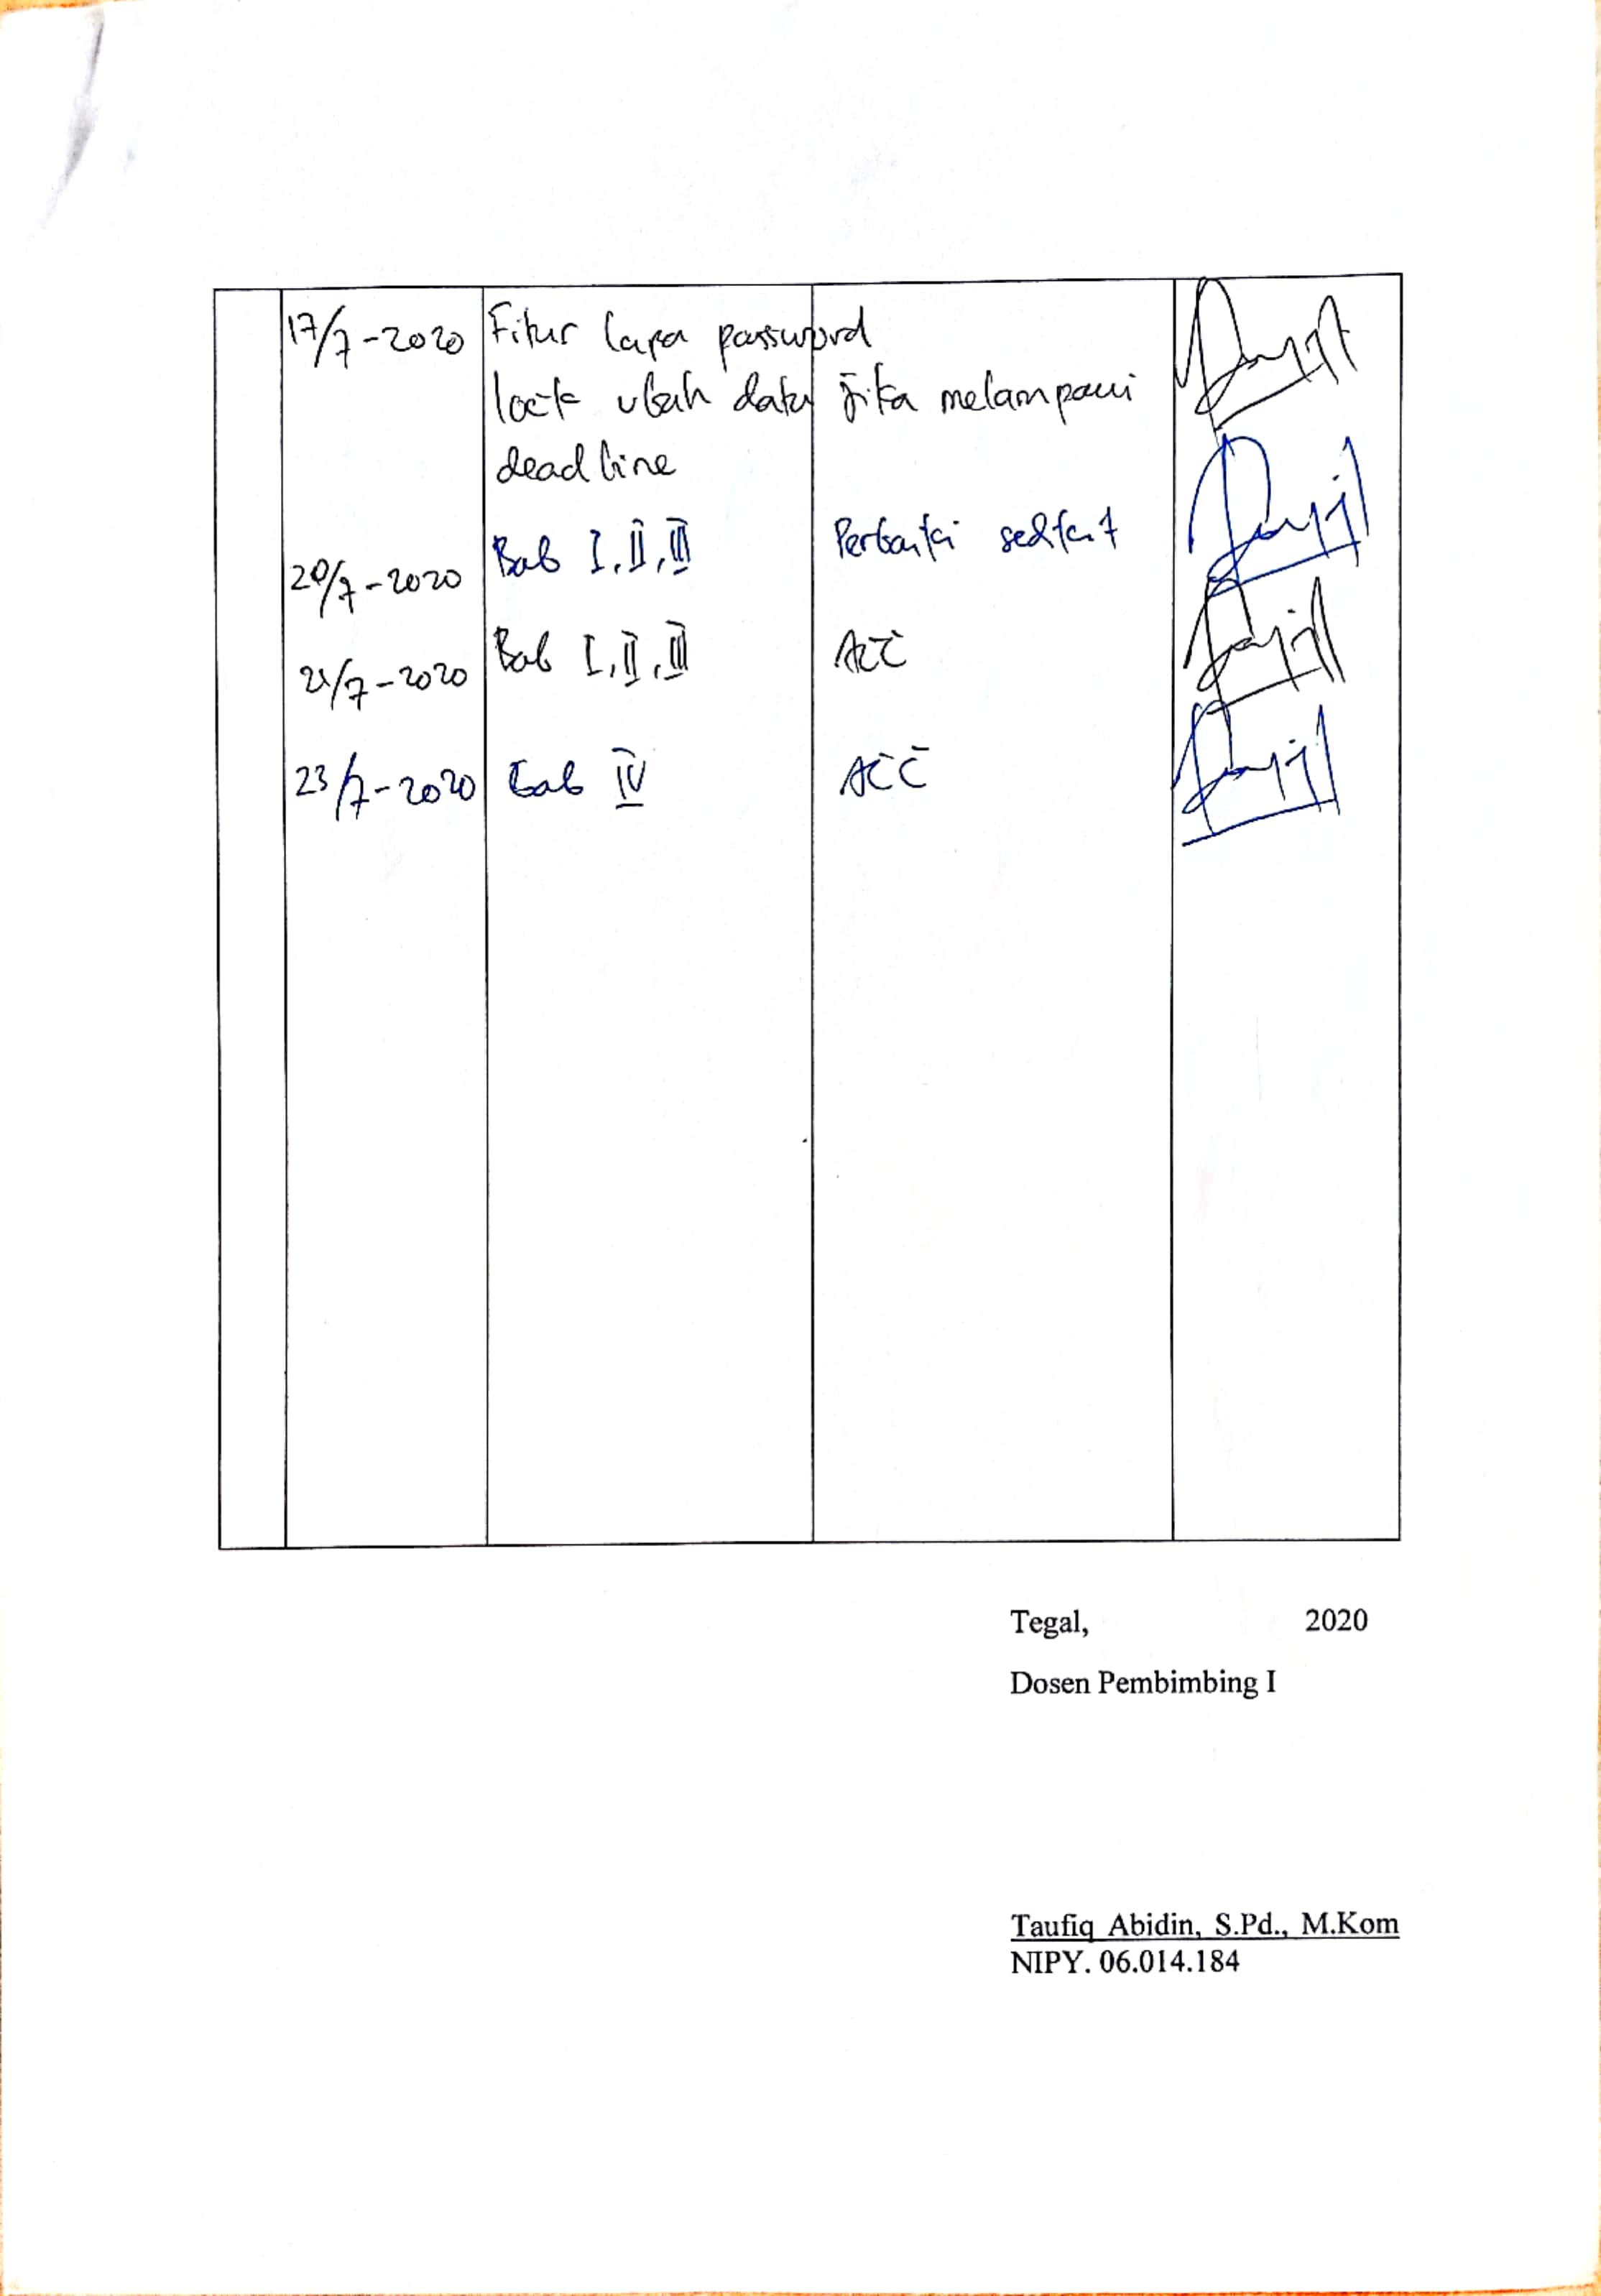 17/7-2020 Fitur lupa password
lock ubah data jika melampaui
deadline
20/7-2020 Bab I, II, III Perbaiki sedikit
21/7-2020 Bab I, II, III ACC
23/7-2020 Bab IV ACC
Tegal, 2020
Dosen Pembimbing I
Taufiq Abidin, S.Pd., M.Kom
NIPY. 06.014.184